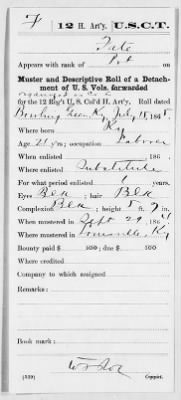 F 12 H. Art'y. U.S.C.T.
Tate
Appears with rank of Pvt on
Muster and Descriptive Roll of a Detach-
ment of U. S. Vols. forwarded
for the 12 Reg't U. S. Col'd H. Art'y. Roll dated
Bowling Green Ky, July 18, 1865.
Where born Ky
Age 21 y'rs; occupation Laborer
When enlisted , 186 .
Where enlisted Substitute
For what period enlisted 1 years.
Eyes Blk ; hair Blk
Complexion Blk ; height 5 ft. 7 in.
When mustered in Sept 29, 1864
Where mustered in Louisville, Ky
Bounty paid $ 100; due $ 100
Where credited
Company to which assigned
Remarks:
Book mark:
(339) Copyist.